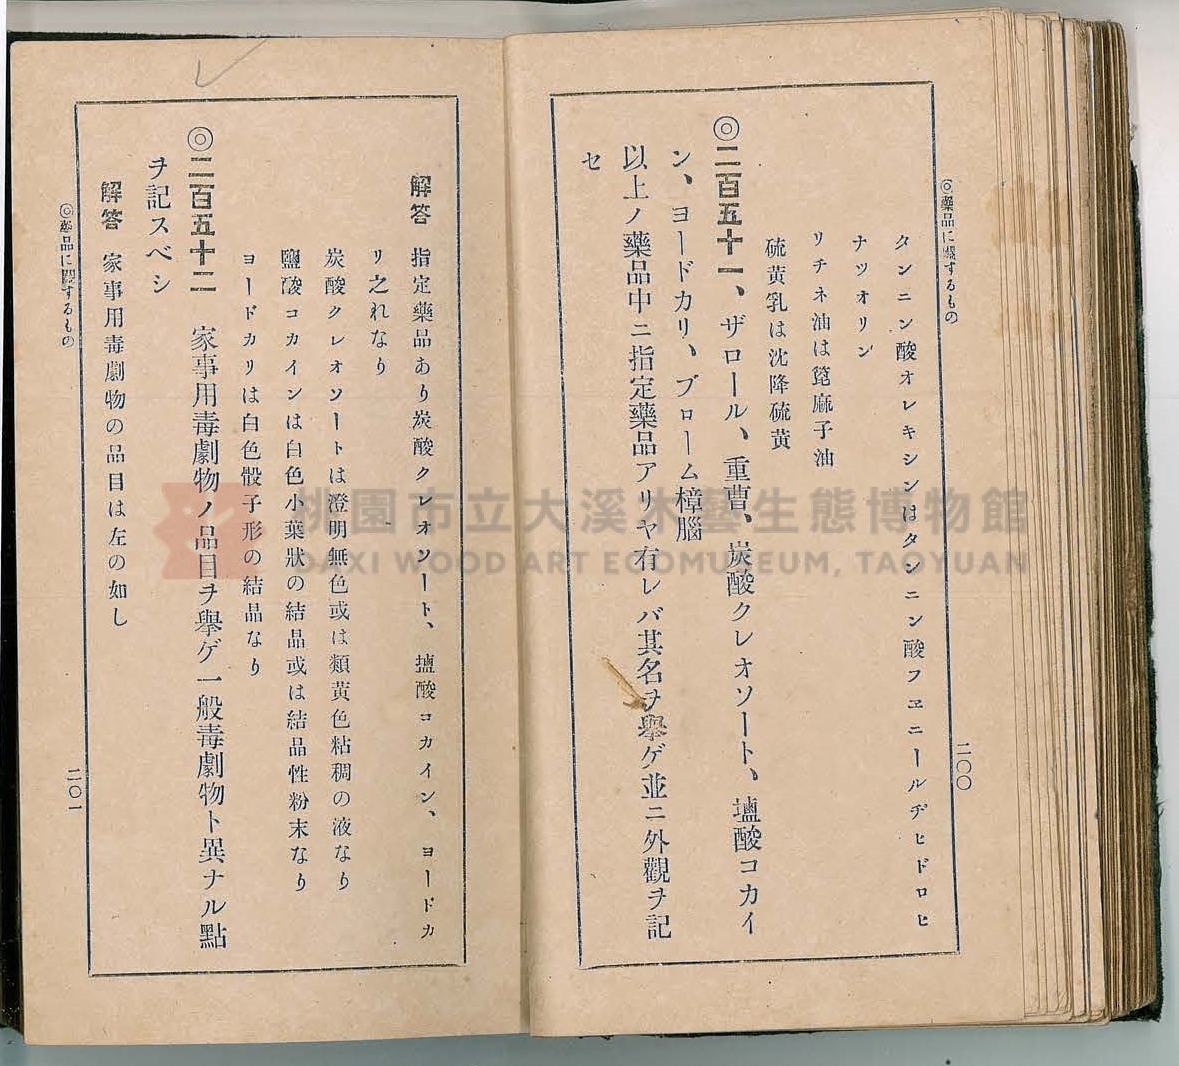 ◎藥品に關するもの
二〇〇
タンニン酸オレキシンはタンニン酸フヱニールヂヒドロヒ
ナツオリン
リチネ油は箆麻子油
硫黄乳は沈降硫黄
◎二百五十一、ザロール、重曹、炭酸クレオソート、塩酸コカイ
ン、ヨードカリ、ブローム樟腦
以上ノ藥品中ニ指定藥品アリヤ有レバ其名ヲ擧ゲ並ニ外觀ヲ記
セ
解答 指定藥品あり炭酸クレオソート、塩酸コカイン、ヨードカ
リ之れなり
炭酸クレオソートは澄明無色或は類黄色粘稠の液なり
鹽酸コカインは白色小葉狀の結晶或は結晶性粉末なり
ヨードカリは白色骰子形の結晶なり
◎二百五十二 家事用毒劇物ノ品目ヲ擧ゲ一般毒劇物ト異ナル點
ヲ記スベシ
解答 家事用毒劇物の品目は左の如し
◎藥品に關するもの
二〇一
桃園市立大溪木藝生態博物館
DAXI WOOD ART ECOMUSEUM, TAOYUAN